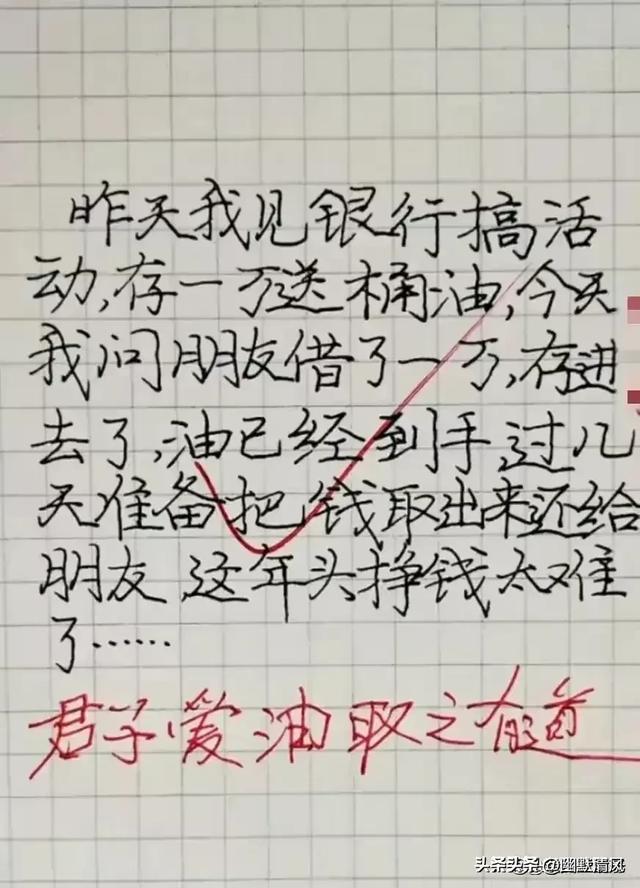 昨天我见银行搞活
动,存一万送桶油,今天
我问朋友借了一万,存进
去了,油已经到手,过几
天准备把钱取出来还给
朋友,这年头挣钱太难
了……
君子爱油取之有道
头条头条 @幽默清风